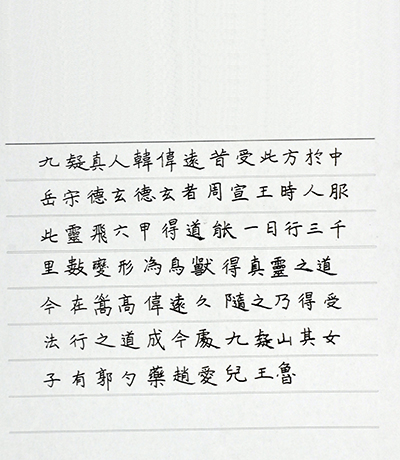 九疑真人韓偉遠昔受此方於中
岳宋德玄德玄者周宣王時人服
此靈飛六甲得道能一日行三千
里數變形為鳥獸得真靈之道
今在嵩高偉遠久隨之乃得受
法行之道成今處九疑山其女
子有郭勺藥趙愛兒王魯